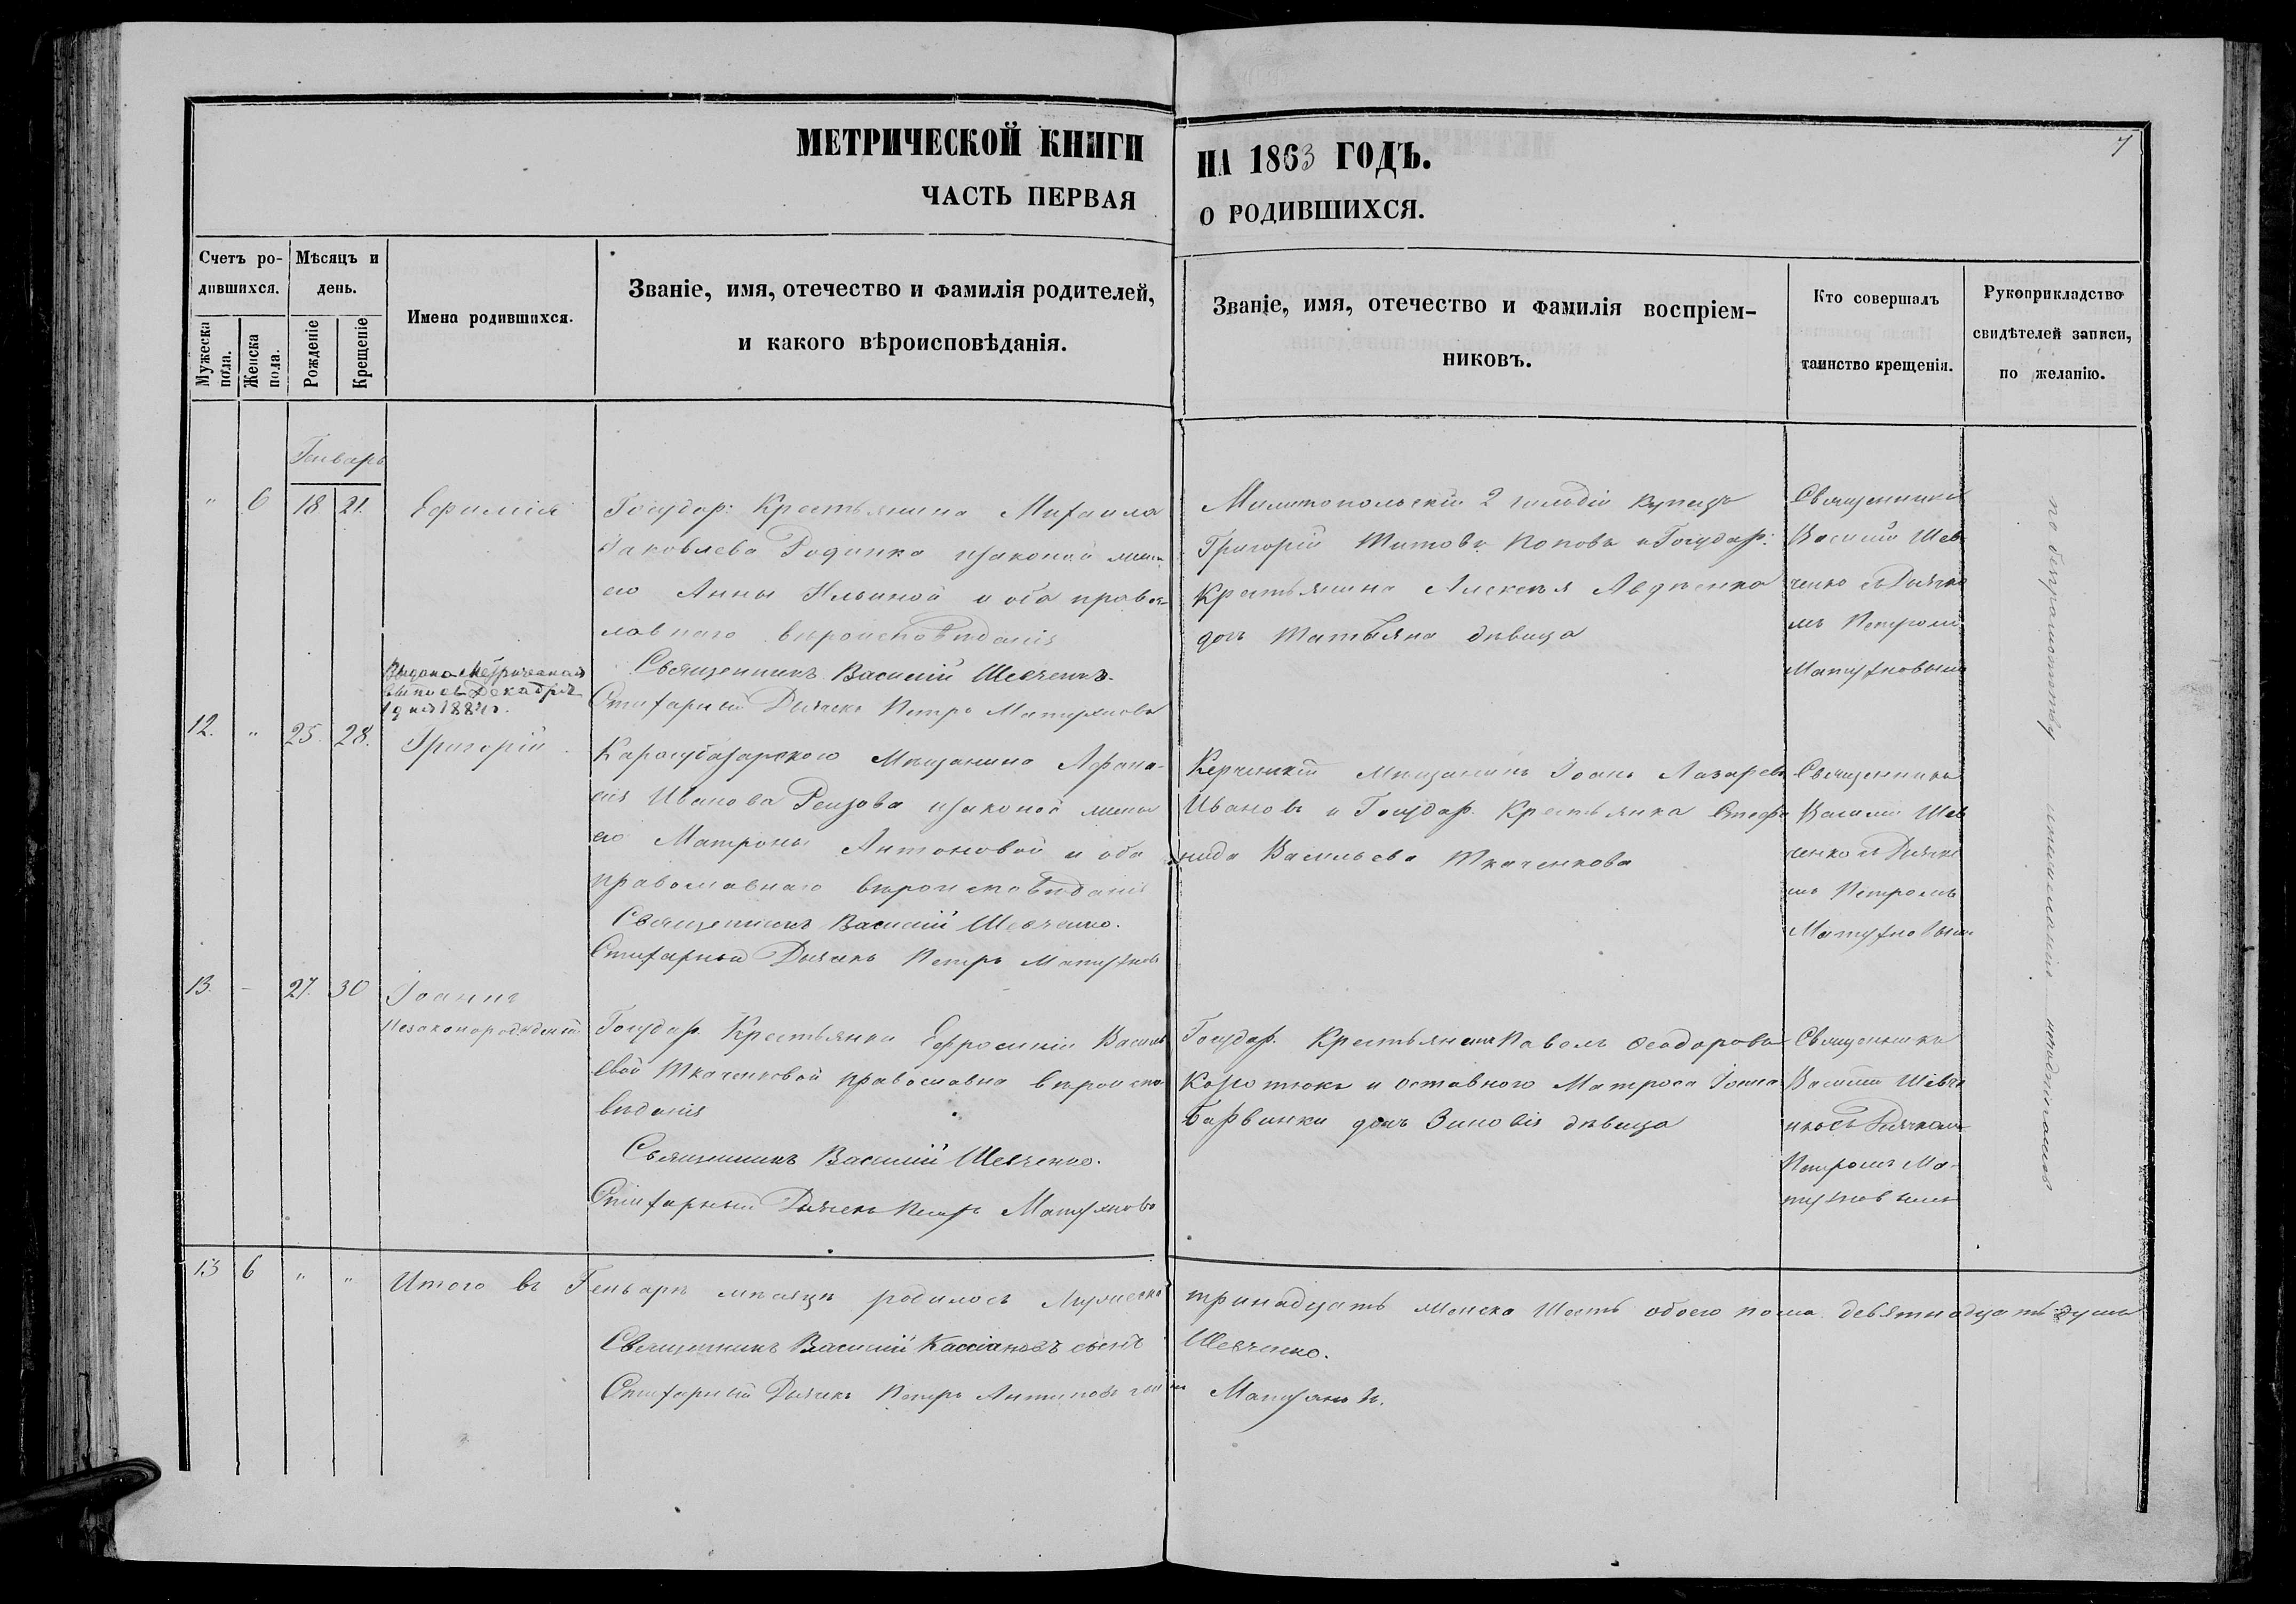 МЕТРИЧЕСКОЙ КНИГИ
НА 1863 ГОДЪ.
7
ЧАСТЬ ПЕРВАЯ
О РОДИВШИХСЯ.
Счетъ ро-
дившихся.
Мужеска
пола.
Женска
пола.
Мѣсяцъ и
день.
Рожденіе
Крещеніе
Имена родившихся.
Званіе, имя, отечество и фамилія родителей,
и какого вѣроисповѣданія.
Званіе, имя, отечество и фамилія воспріем-
никовъ.
Кто совершалъ
таинство крещенія.
Рукоприкладство
свидѣтелей записи,
по желанію.
Генварь
" 6 18 21. Ефимія
Государ: Крестьянина Михаила
Яковлева Родинка изаконой жены
его Анны Ильиной и оба правос-
лавнаго вѣроисповѣданія
Священникъ Василій Шевченко.
Стихарный Дьячекъ Петръ Матузновъ
Милитопольскій 2 гильдіи Купецъ
Григорій Титовъ Поповъ и Государ:
Крестьянина Алексѣя Авдѣенка
дочъ Татьяна дѣвица
Священникъ
Василій Шев
ченко съ Дьячко
мъ Петромъ
Матузновымъ
Выдана Метрическая
выпись Декабря
1 дня 188
12. " 25. 28. Григорій
Карасубазарского Мѣщанина Афана-
сія Иванова изаконой жены
его Матроны Антоновой и оба
православнаго вѣроисповѣданія
Священникъ Василій Шевченко.
Стихарный Дьячекъ Петръ Матузновъ
Керченскій Мѣщанинъ Іоанъ Лазаревъ
Ивановъ и Государ. Крестьянка Стефа
нида Васильева Ткаченкова
Священникъ
Василій Шев
ченко съ Дьячко
мъ Петромъ
Матузновымъ
13. - 27. 30 Іоаннъ
Незаконорожденый
Государ. Крестьянки Ефросиніи Василь
евой Ткаченковой православна вѣроиспо
вѣданія
Священникъ Василій Шевченко.
Стихарный Дьячекъ Петръ Матузновъ
Государ. Крестьянинъ Павелъ Ѳеодоровъ
и оставного Матроса Іоана
Барвинки дочъ Зиновія дѣвица
Священникъ
Василій Шевче
нко съ Дьячкомъ
Петромъ Ма-
тузновымъ
по безграмотству
13 6 " " Итого въ Генварѣ мѣсяцѣ родилось Мужеска тринадцать Женска Шесть обоего пола девятнадцать душъ
Священникъ Василій Кассіановъ сынъ Шевченко.
Стихарный Дьячекъ Петръ Антиповъ сынъ Матузновъ.